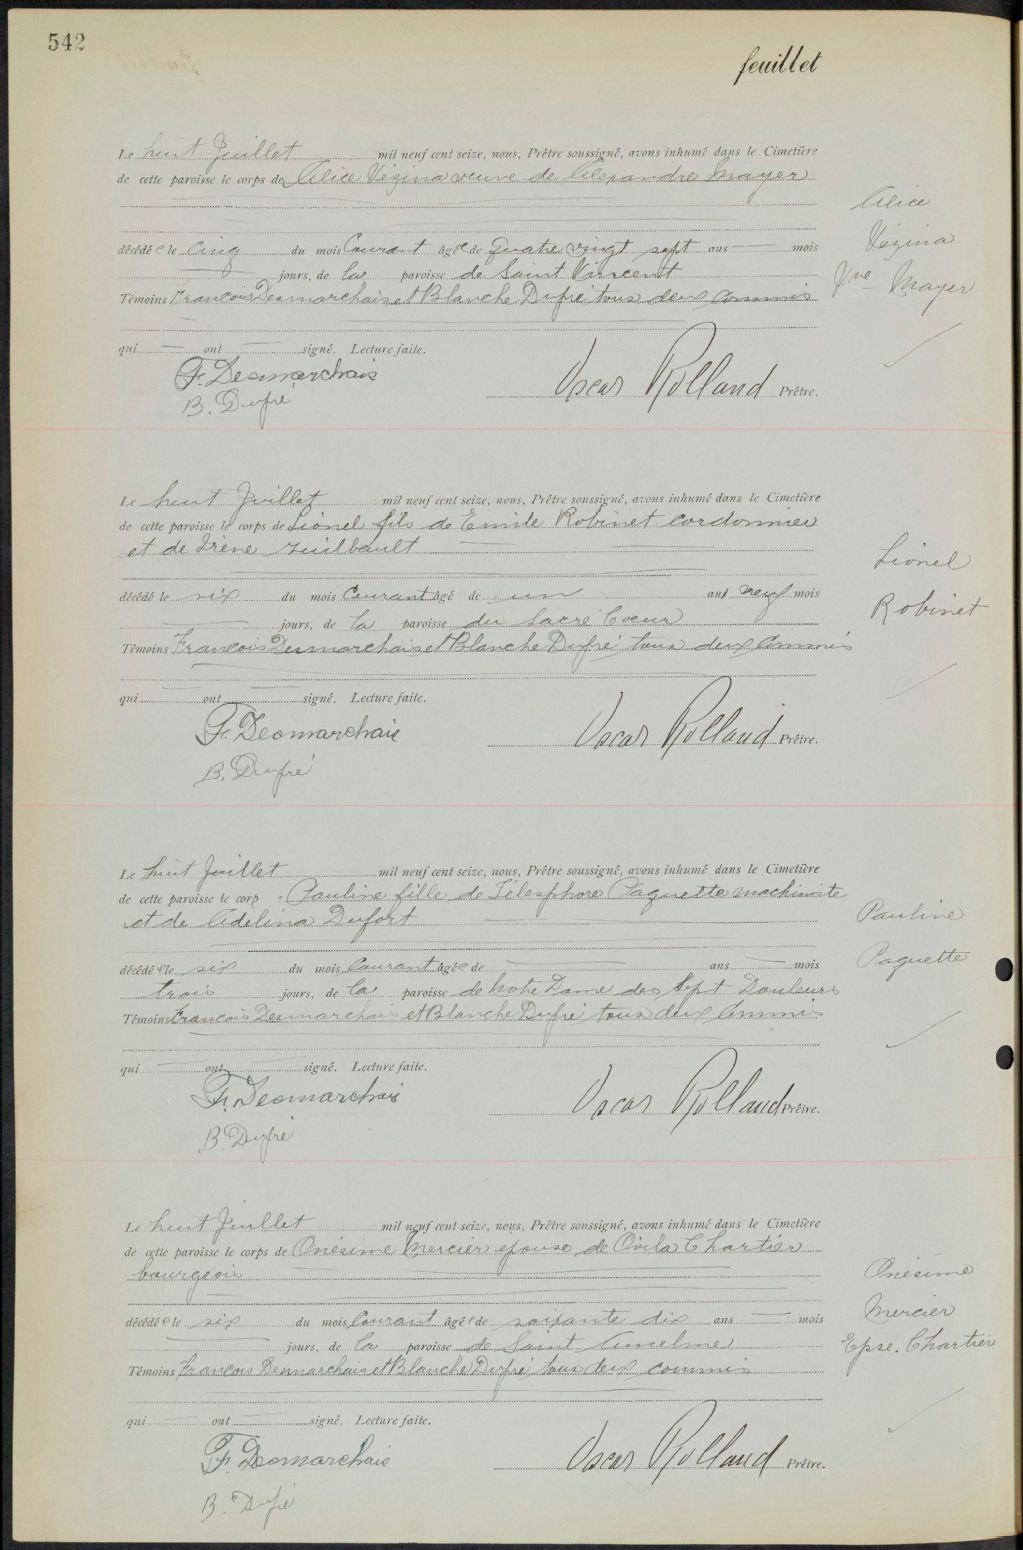 542
feuillet
Le huit Juillet mil neuf cent seize, nous, Prêtre soussigné, avons inhumé dans le Cimetière
de cette paroisse le corps de Alice Vézina veuve de Alexandre Mayer
Alice
décédée le cinq du mois Courant âgée de Quatre vingt sept ans mois
Vézina
jours, de la paroisse de Saint Vincent
Vve Mayer
Témoins François Desmarchais et Blanche Dufré tous deux commis
qui ont signé. Lecture faite.
F. Desmarchais
Oscar Rolland Prêtre.
B. Dufré
Le huit Juillet mil neuf cent seize, nous, Prêtre soussigné, avons inhumé dans le Cimetière
de cette paroisse le corps de Lionel fils de Emile Robinet cordonnier
et de Irène Guilbault
Lionel
décédé le six du mois Courant âgé de un ans neuf mois
Robinet
jours, de la paroisse du Sacré Coeur
Témoins François Desmarchais et Blanche Dufré tous deux Commis
qui ont signé. Lecture faite.
F. Desmarchais
Oscar Rolland Prêtre.
B. Dufré
Le huit Juillet mil neuf cent seize, nous, Prêtre soussigné, avons inhumé dans le Cimetière
de cette paroisse le corp Pauline fille de Télesphore Paquette machiniste
et de Adelina Dufort
Pauline
décédée le six du mois Courant âgée de ans mois
Paquette
trois jours, de la paroisse de Notre Dame des Sept Douleurs
Témoins François Desmarchais et Blanche Dufré tous deux Commis
qui ont signé. Lecture faite.
F. Desmarchais
Oscar Rolland Prêtre.
B. Dufré
Le huit Juillet mil neuf cent seize, nous, Prêtre soussigné, avons inhumé dans le Cimetière
de cette paroisse le corps de Onésime Mercier épouse de Ovila Chartier
bourgeois
Onésime
décédée le six du mois Courant âgée de soixante dix ans mois
Mercier
jours, de la paroisse de Saint Anselme
Epse. Chartier
Témoins François Desmarchais et Blanche Dufré tous deux commis
qui ont signé. Lecture faite.
F. Desmarchais
Oscar Rolland Prêtre.
B. Dufré